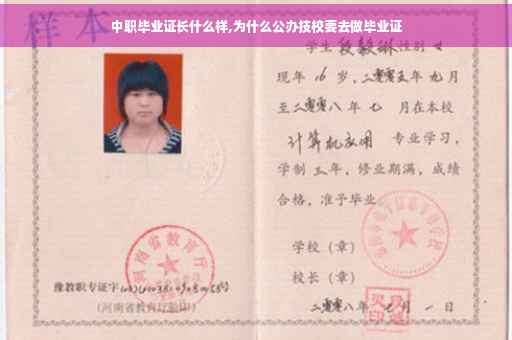 中职毕业证长什么样,为什么公办技校要去做毕业证
样本
学生 段毅琳 性别 女
现年 16 岁，二零零五年 九月
至二零零八年 七 月在本校
计算机应用 专业学习，
学制 三年，修业期满，成绩
合格，准予毕业
学校（章）
校长（章）
豫教职专证字
（河南省教育厅验印）
二零零八年 七月 一日
河南省教育厅